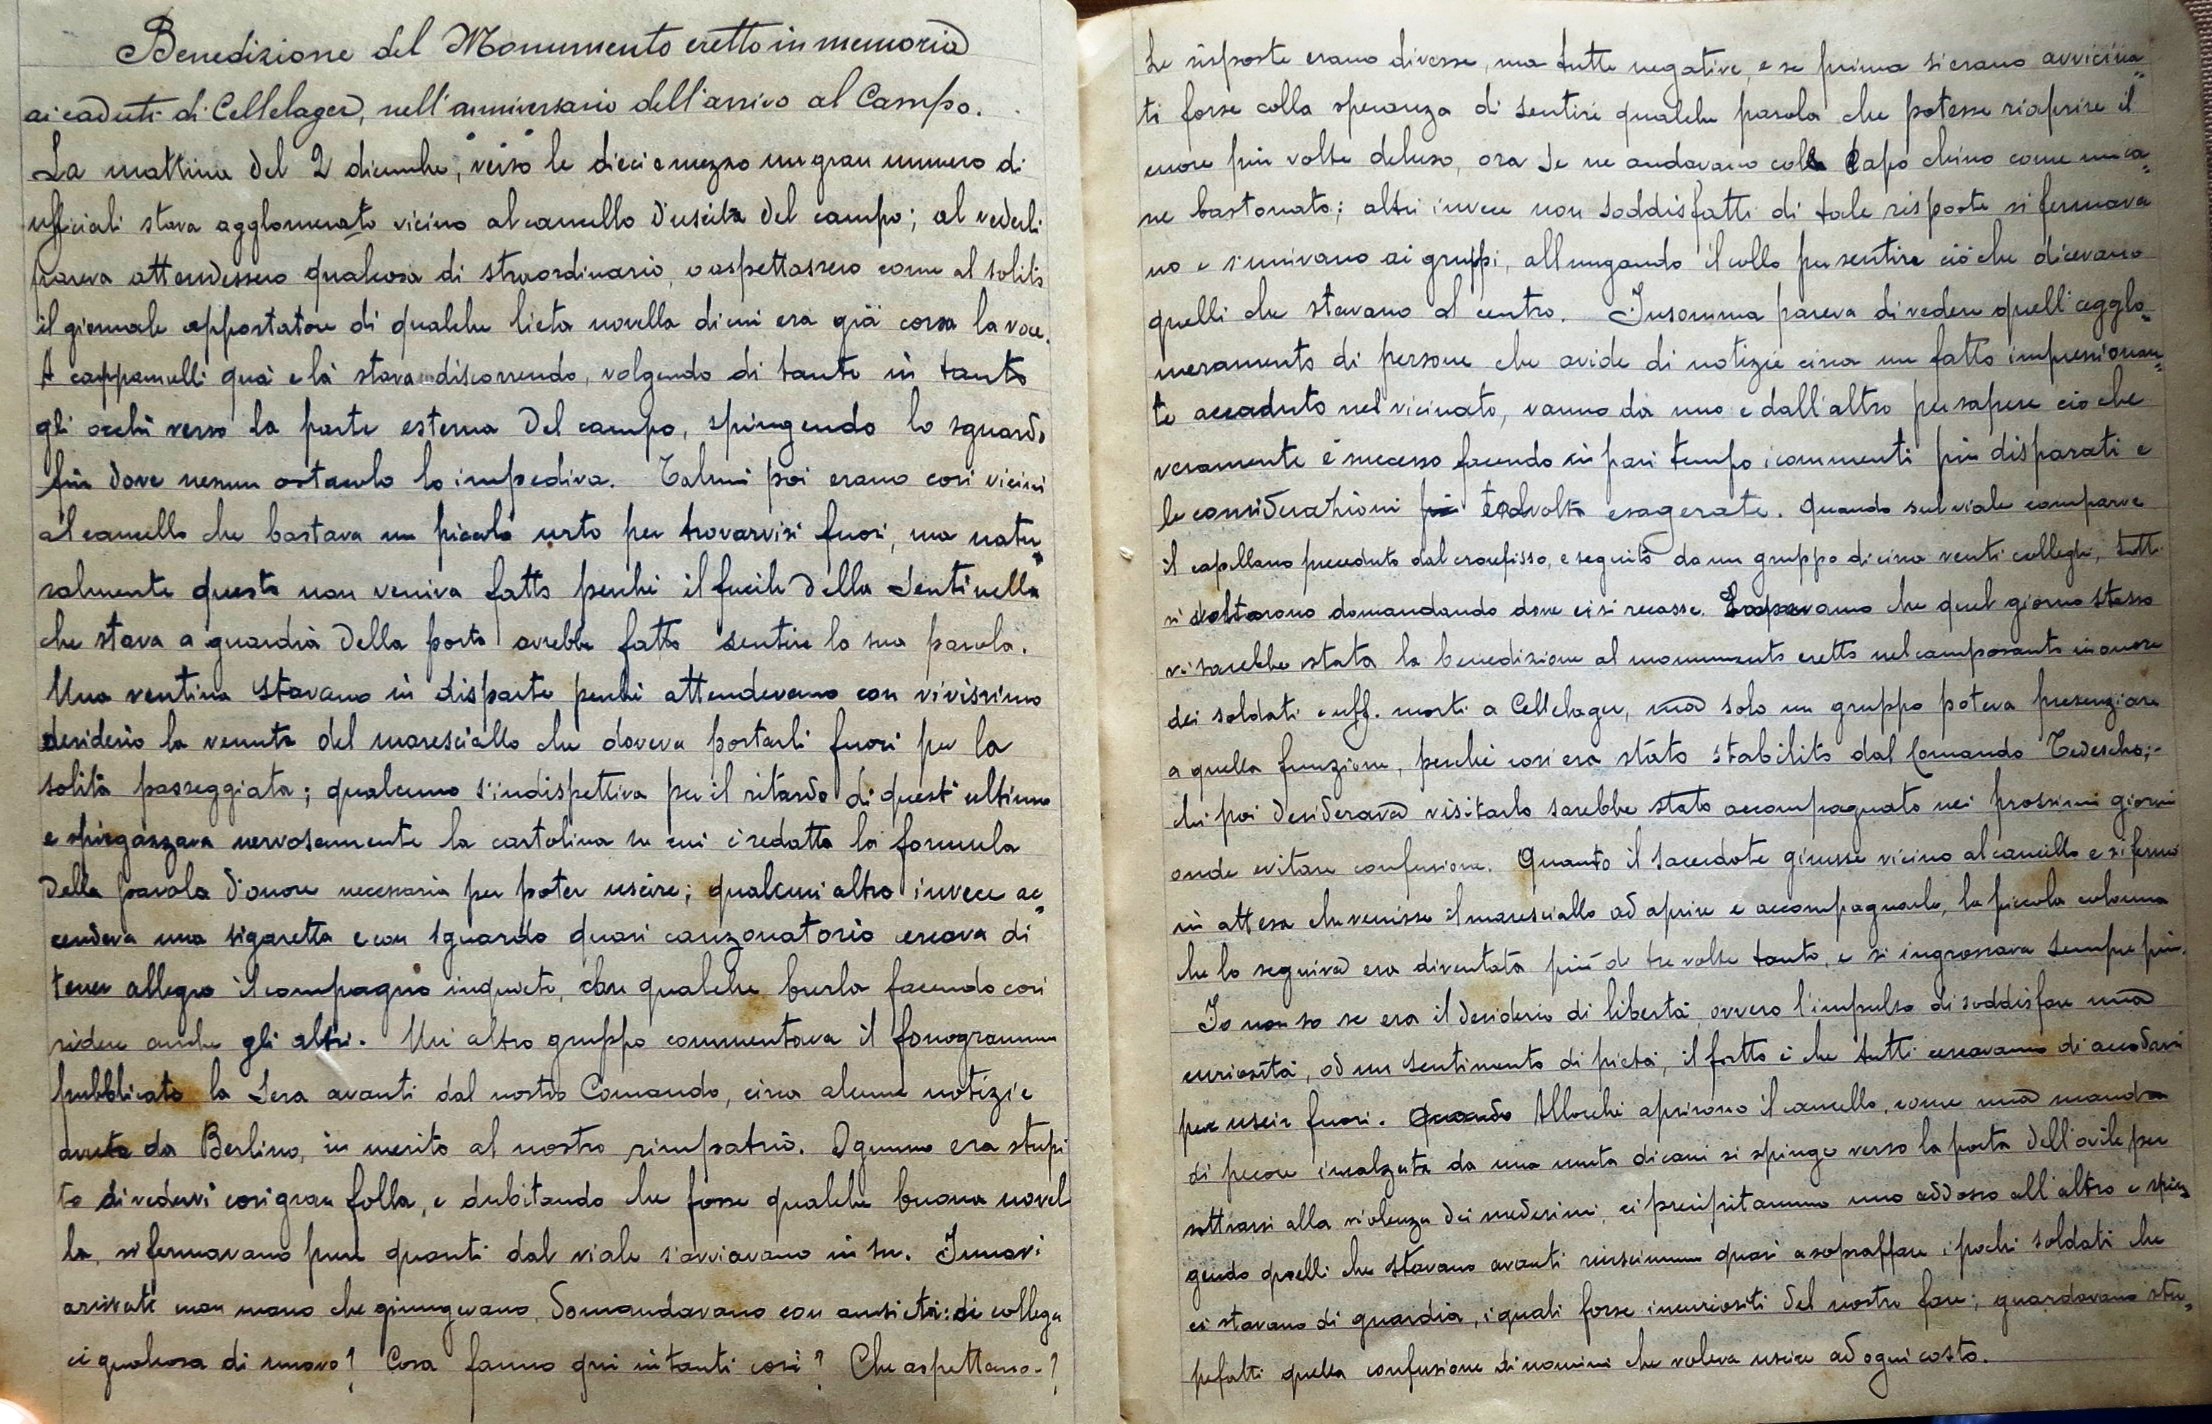 Benedizione del Monumento eretto in memoria
ai caduti di Cellelager, nell'anniversario dell'arrivo al Campo.
La mattina del 2 dicembre, verso le dieci e mezzo un gran numero di
ufficiali stava agglomerato vicino al cancello d'uscita del campo; al vederli
pareva attendessero qualcosa di straordinario, o aspettassero come al solito
il giornale apportatore di qualche lieta novella di cui era già corsa la voce.
A cappannelli quà e là stavano discorrendo, volgendo di tanto in tanto
gli occhi verso la parte esterna del campo, spingendo lo sguardo
fin dove nessun ostacolo lo impediva. Taluni poi erano così vicini
al cancello che bastava un piccolo urto per trovarvisi fuori, ma natu=
ralmente questo non veniva fatto perchè il fucile della sentinella
che stava a guardia della porta avrebbe fatto sentire la sua parola.
Una ventina stavano in disparte perchè attendevano con vivissimo
desiderio la venuta del maresciallo che doveva portarli fuori per la
solita passeggiata; qualcuno s'indispettiva per il ritardo di quest'ultimo
e spiegazzava nervosamente la cartolina su cui è redatta la formula
della parola d'onore necessaria per poter uscire; qualcun altro invece ac=
cendeva una sigaretta e con sguardo quasi canzonatorio cercava di
tener allegro il compagno inquieto, con qualche burla facendo così
ridere anche gli altri. Un altro gruppo commentava il fonogramma
pubblicato la sera avanti dal nostro Comando, circa alcune notizie
avute da Berlino, in merito al nostro rimpatrio. Ognuno era stupi
to di vedervi così gran folla, e dubitando che fosse qualche buona novel
la, si fermavano pure quanti dal viale s'avviavano in su. I nuovi
arrivati man mano che giungevano, domandavano con ansietà: di collega
c'è qualcosa di nuovo? Cosa fanno qui in tanti così? Che aspettano?
Le risposte erano diverse, ma tutte negative, e se prima si erano avvicina=
ti forse colla speranza di sentire qualche parola che potesse riaprire il
cuore più volte deluso, ora se ne andavano col capo chino come un ca=
ne bastonato; altri invece non soddisfatti di tale risposte si fermava
no e s'univano ai gruppi, allungando il collo per sentire ciò che dicevano
quelli che stavano al centro. Insomma pareva di vedere quell'agglo=
meramento di persone che avide di notizie circa un fatto impressionan=
te accaduto nel vicinato, vanno da uno e dall'altro per sapere ciò che
veramente è successo facendo in pari tempo i commenti più disparati e
le considerazioni talvolta esagerate. Quando sul viale comparve
il capellano preceduto dal crocefisso, e seguito da un gruppo di circa venti colleghi, tutti
si voltarono domandando dove ci si recasse. Sapevamo che quel giorno stesso
vi sarebbe stata la benedizione al monumento eretto nel camposanto in onore
dei soldati e uff. morti a Cellelager, ma solo un gruppo poteva presenziare
a quella funzione, perchè così era stato stabilito dal Comando Tedesco;
chi poi desiderava visitarlo sarebbe stato accompagnato nei prossimi giorni
onde evitare confusione. Quanto il sacerdote giunse vicino al cancello e si fermò
in attesa che venisse il maresciallo ad aprire e accompagnarlo, la piccola colonna
che lo seguiva era diventata più di tre volte tanto, e si ingrossava sempre più.
Io non so se era il desiderio di libertà, ovvero l'impulso di soddisfare una
curiosità, od un sentimento di pietà, il fatto è che tutti cercavamo di accodarci
per uscir fuori. Allorchè aprirono il cancello, come una mandra
di pecore incalzata da una muta di cani si spinge verso la porta dell'ovile per
sottrarsi alla violenza dei medesimi, ci precipitammo uno addosso all'altro e spin=
gendo quelli che stavano avanti riuscimmo quasi a sopraffare i pochi soldati che
ci stavano di guardia, i quali forse incuriositi del nostro fare, guardavano stu=
pefatti quella confusione di uomini che voleva uscire ad ogni costo.